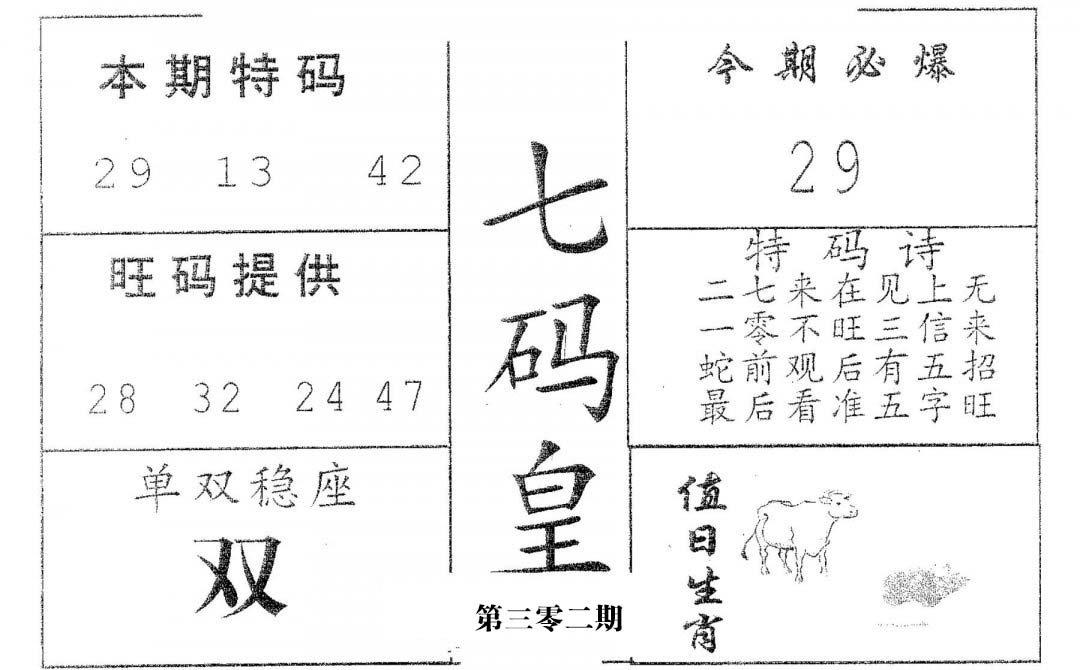 本期特码
29 13 42
旺码提供
28 32 24 47
单双稳座
双
七码皇
第三零二期
今期必爆
29
特码诗
二七来在见上无
一零不旺三信来
蛇前观后有五招
最后看准五字旺
值日生肖